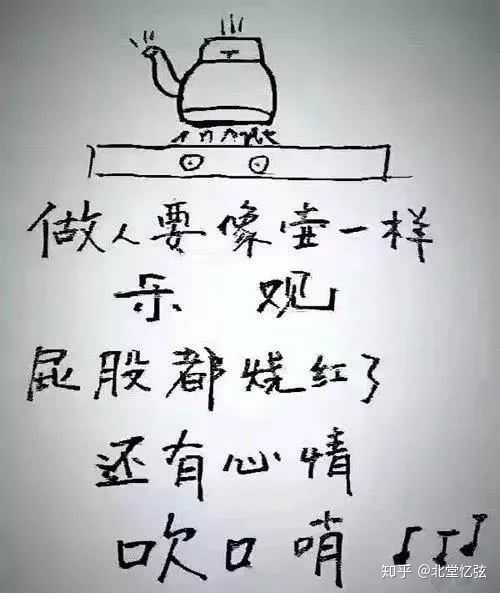 做人要像壶一样
乐 观
屁股都烧红了
还有心情
吹口哨
知乎 @北堂忆弦